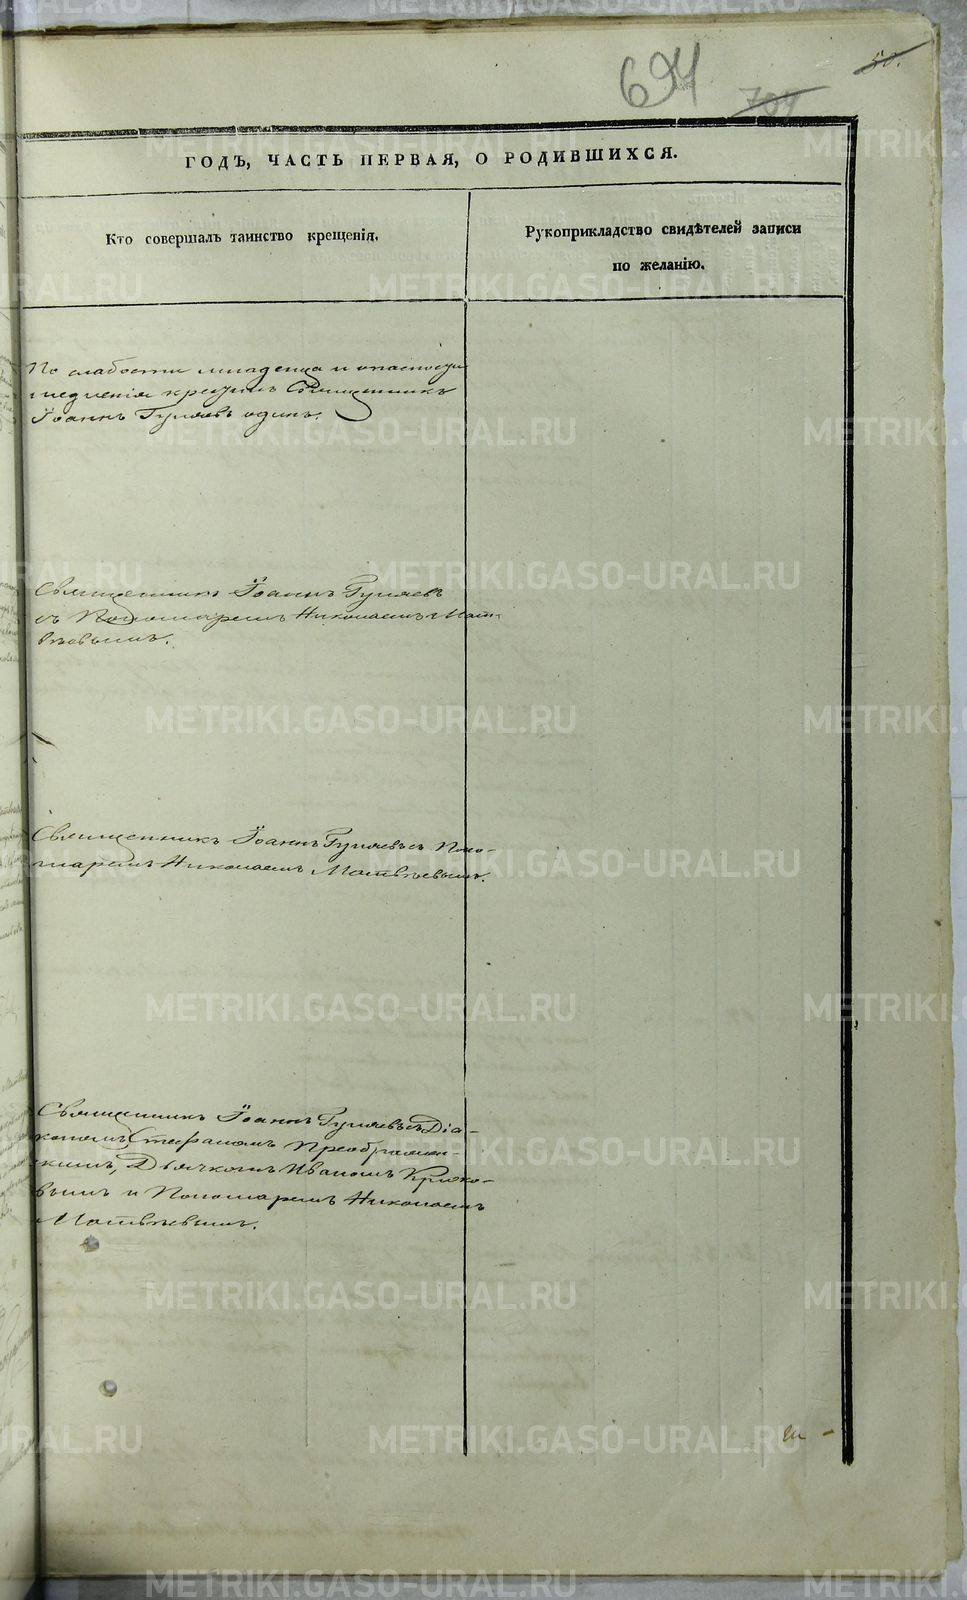 50.
694
704
ГОДЪ, ЧАСТЬ ПЕРВАЯ, О РОДИВШИХСЯ.
Кто совершалъ таинство крещенія.
Рукоприкладство свидѣтелей записи
по желанію.
По слабости младенца и опасности
медленія крестилъ Священникъ
Іоаннъ Гуляевъ одинъ.
Священникъ Іоаннъ Гуляевъ
съ Пономаремъ Николаемъ Мат-
вѣевымъ.
Священникъ Іоаннъ Гуляевъ съ Поно-
маремъ Николаемъ Матвѣевымъ.
Священникъ Іоаннъ Гуляевъ съ Діа-
кономъ Стефаномъ Преображен-
скимъ, Дьячкомъ Иваномъ Крюко-
вымъ и Пономаремъ Николаемъ
Матвѣевымъ.
METRIKI.GASO-URAL.RU